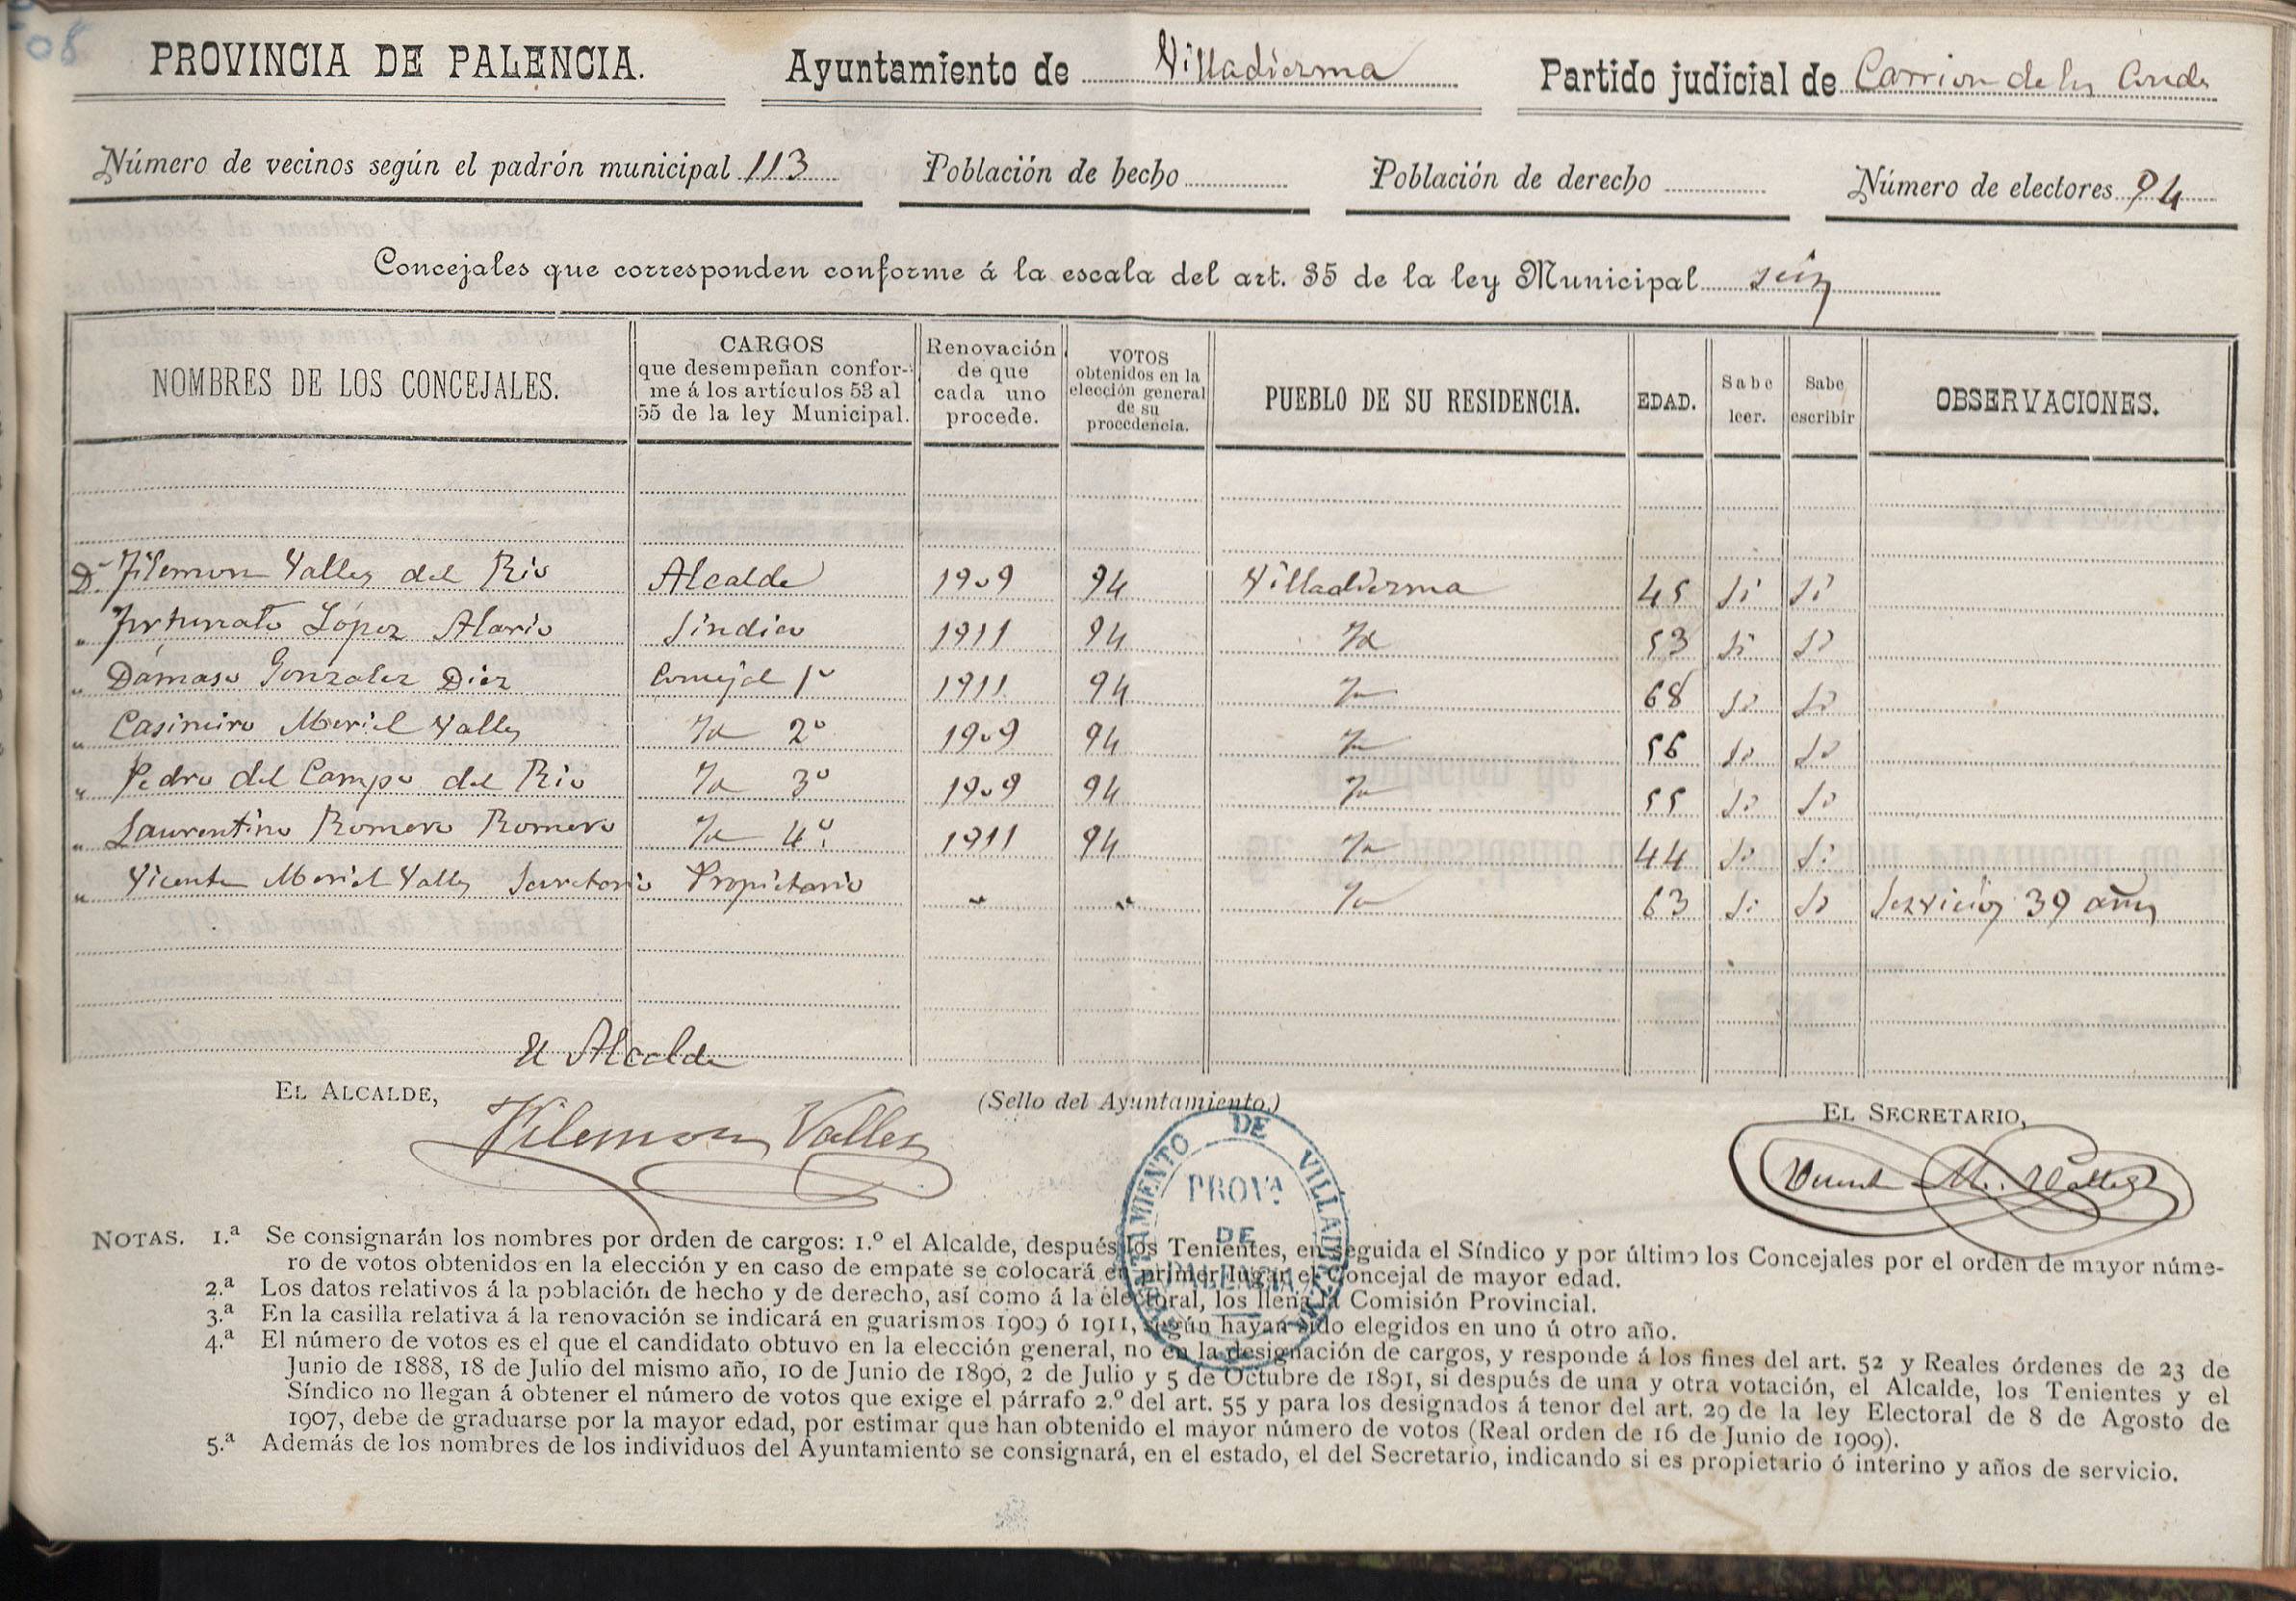 08
PROVINCIA DE PALENCIA. Ayuntamiento de Villadierma Partido judicial de Carrion de los Condes
Número de vecinos según el padrón municipal 113 Población de hecho Población de derecho Número de electores 94
Concejales que corresponden conforme á la escala del art. 35 de la ley Municipal seis
NOMBRES DE LOS CONCEJALES. CARGOS que desempeñan conforme á los artículos 53 al 55 de la ley Municipal. Renovación de que cada uno procede. VOTOS obtenidos en la elección general de su procedencia. PUEBLO DE SU RESIDENCIA. EDAD. Sabe leer. Sabe escribir OBSERVACIONES.
D. Filemon Valles del Rio Alcalde 1909 94 Villadierma 45 Si Si
" Fortunato López Alario Sindico 1911 94 Id 53 Si Si
" Dámaso Gonzalez Diez Concejal 1º 1911 94 Id 68 Si Si
" Casimiro Meriel Valles Id 2º 1909 94 Id 56 Si Si
" Pedro del Campo del Rio Id 3º 1909 94 Id 55 Si Si
" Laurentino Romero Romero Id 4º 1911 94 Id 44 Si Si
" Vicente Meriel Valles Secretario Propietario " " Id 63 Si Si Servicios 39 años
El Alcalde
EL ALCALDE, (Sello del Ayuntamiento.) EL SECRETARIO,
Filemon Valles
Vicente M. Valles
AYUNTAMIENTO DE VILLADIERMA
PROVA
DE
PALENCIA
NOTAS. 1.ª Se consignarán los nombres por orden de cargos: 1.º el Alcalde, después los Tenientes, en seguida el Síndico y por último los Concejales por el orden de mayor núme-
ro de votos obtenidos en la elección y en caso de empate se colocará en primer lugar el Concejal de mayor edad.
2.ª Los datos relativos á la población de hecho y de derecho, así como á la electoral, los llena la Comisión Provincial.
3.ª En la casilla relativa á la renovación se indicará en guarismos 1909 ó 1911, según hayan sido elegidos en uno ú otro año.
4.ª El número de votos es el que el candidato obtuvo en la elección general, no en la designación de cargos, y responde á los fines del art. 52 y Reales órdenes de 23 de
Junio de 1888, 18 de Julio del mismo año, 10 de Junio de 1890, 2 de Julio y 5 de Octubre de 1891, si después de una y otra votación, el Alcalde, los Tenientes y el
Síndico no llegan á obtener el número de votos que exige el párrafo 2.º del art. 55 y para los designados á tenor del art. 29 de la ley Electoral de 8 de Agosto de
1907, debe de graduarse por la mayor edad, por estimar que han obtenido el mayor número de votos (Real orden de 16 de Junio de 1909).
5.ª Además de los nombres de los individuos del Ayuntamiento se consignará, en el estado, el del Secretario, indicando si es propietario ó interino y años de servicio.